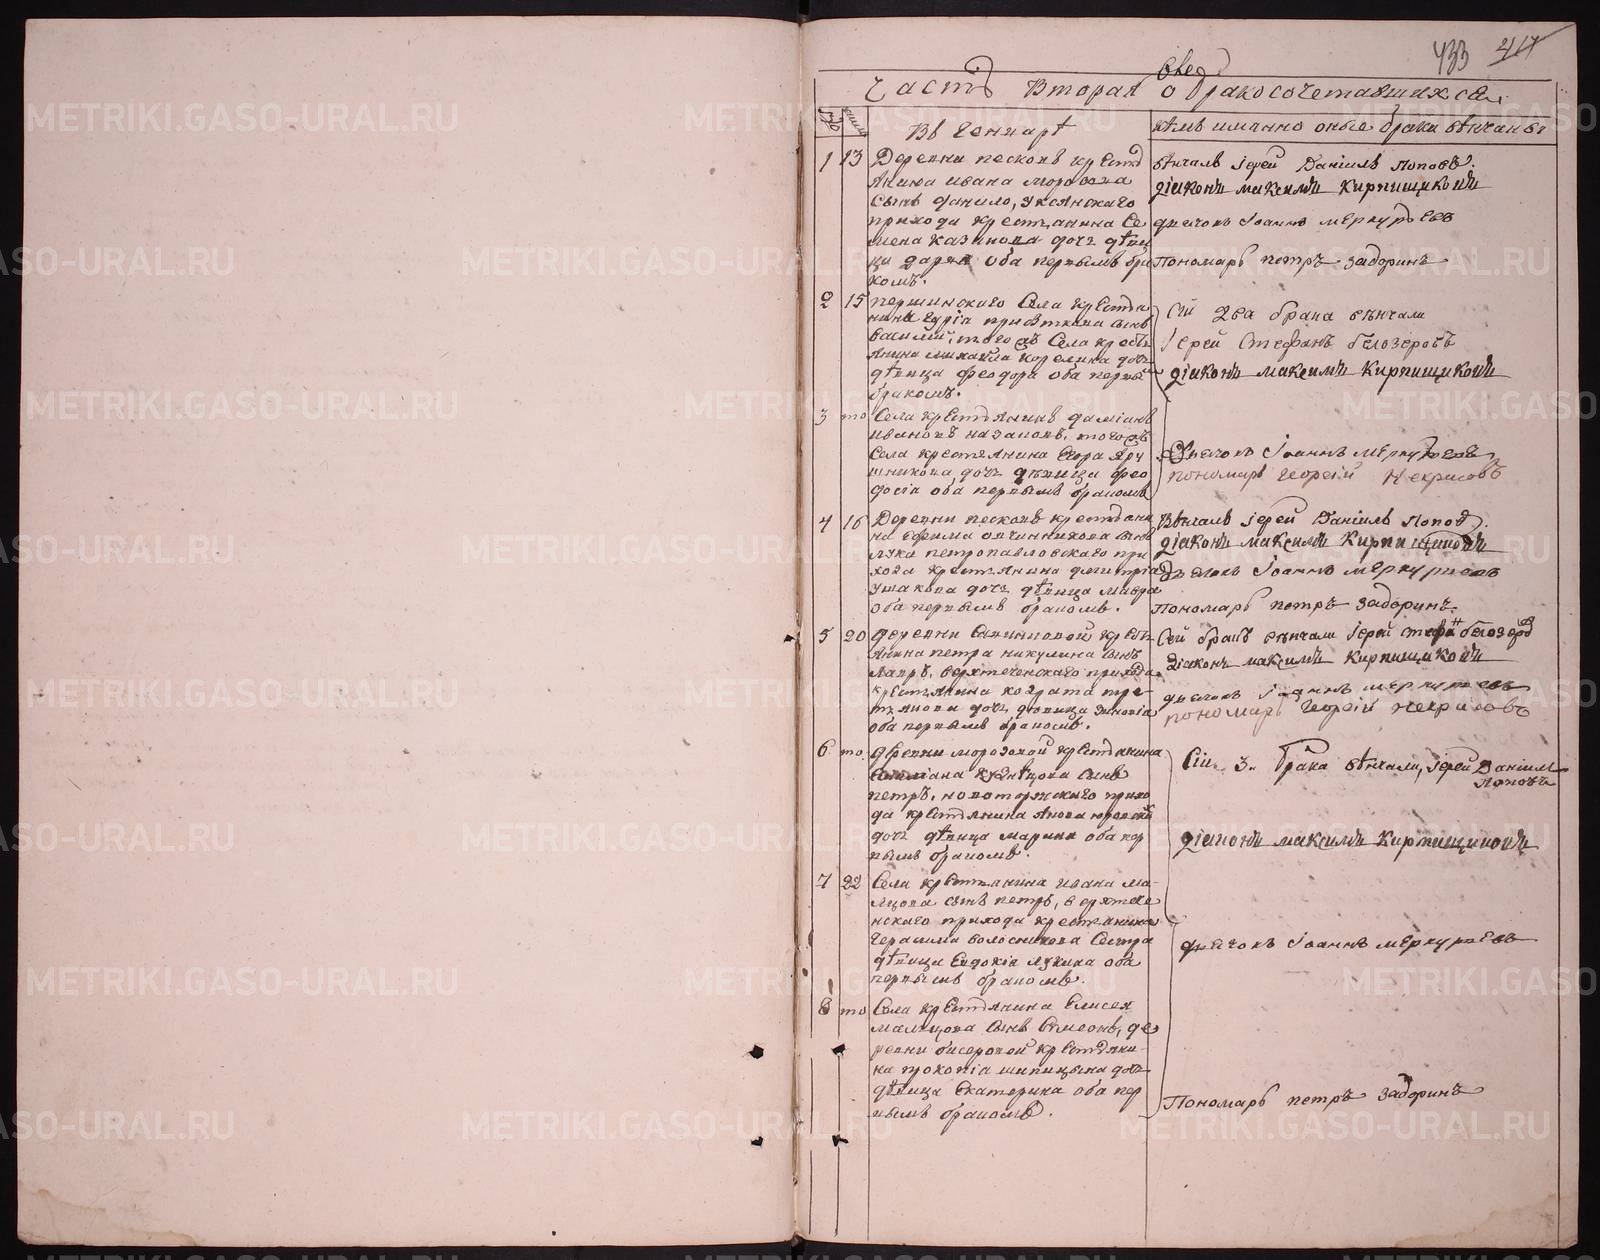 433 417
Часть Вторая о бракосочетавшихся
Въ Генварѣ
кѣмъ имянно оные браки вѣнчаны
1 13 Деревни песковъ крестья
янина ивана морозова
сынъ данило, уксянскаго
прихода крестьянина Се
мена казакова дочь дѣви
ца дарья оба первымъ бра
комъ.
вѣнчалъ іерей Даніилъ Поповъ.
діаконъ максимъ Кирпищиковъ
дьячокъ Іоаннъ меркурьевъ
Пономарь петръ задоринъ
2 15 першинскаго Села крестья
василий, того жъ Села кресть
янина михаила корелина дочь
дѣвица феодора оба первы
бракомъ.
Сіи два брака вѣнчали
Іерей Стефанъ белозеровъ
діаконъ максимъ Кирпищиковъ
3 то Села крестьянинъ даміанъ
ивановъ казаковъ, того жъ
Села крестьянина Егора
шникова дочь дѣвица фео
досія оба первымъ бракомъ
Дьячокъ Іоаннъ меркурьевъ
пономарь Георгій Некрасовъ
4 16 Деревни песковъ крестьяни
на Ефима овчинникова сынъ
лука петропавловскаго при
хода крестьянина дмитрія
ушакова дочь дѣвица мавра
оба первымъ бракомъ.
Вѣнчалъ іерей Даніилъ Попов.
діаконъ максимъ Кирпищиковъ
Дьячокъ Іоаннъ меркурьевъ
Пономарь петръ задоринъ.
5 20 деревни кресть
янина петра никулина сынъ
лавръ, верхтеченскаго прихода
крестьянина кодрата тре
тьякова дочь дѣвица зиновія
оба первымъ бракомъ.
Сей бракъ вѣнчали Іерей стефан белозеров
діаконъ максимъ Кирпищиковъ
дьячокъ Іоаннъ меркурьевъ
пономарь Георгій некрасовъ
6 то деревни морозовой крестьянина
кузнѣцова сынъ
петръ, новоторжскаго прихо
да крестьянина якова
дочь дѣвица марина оба пер
вымъ бракомъ.
Сіи 3. брака вѣнчали, іерей Даніил
Поповъ
діаконъ максимъ Кирпищиковъ
7 22 Села крестьянина ивана ма
льцова сынъ петръ, верхтече
нскаго прихода крестьянина
Герасима волосникова Сестра
дѣвица Евдокія лукина оба
первымъ бракомъ.
дьячокъ Іоаннъ меркурьевъ
8 то Села крестьянина Елисея
мальцова сынъ Симеонъ, де
ревни бисеровой крестьяни
на прокопіа шипицына дочь
дѣвица Екатерина оба пер
вымъ бракомъ.
Пономарь петръ задоринъ
METRIKI.GASO-URAL.RU